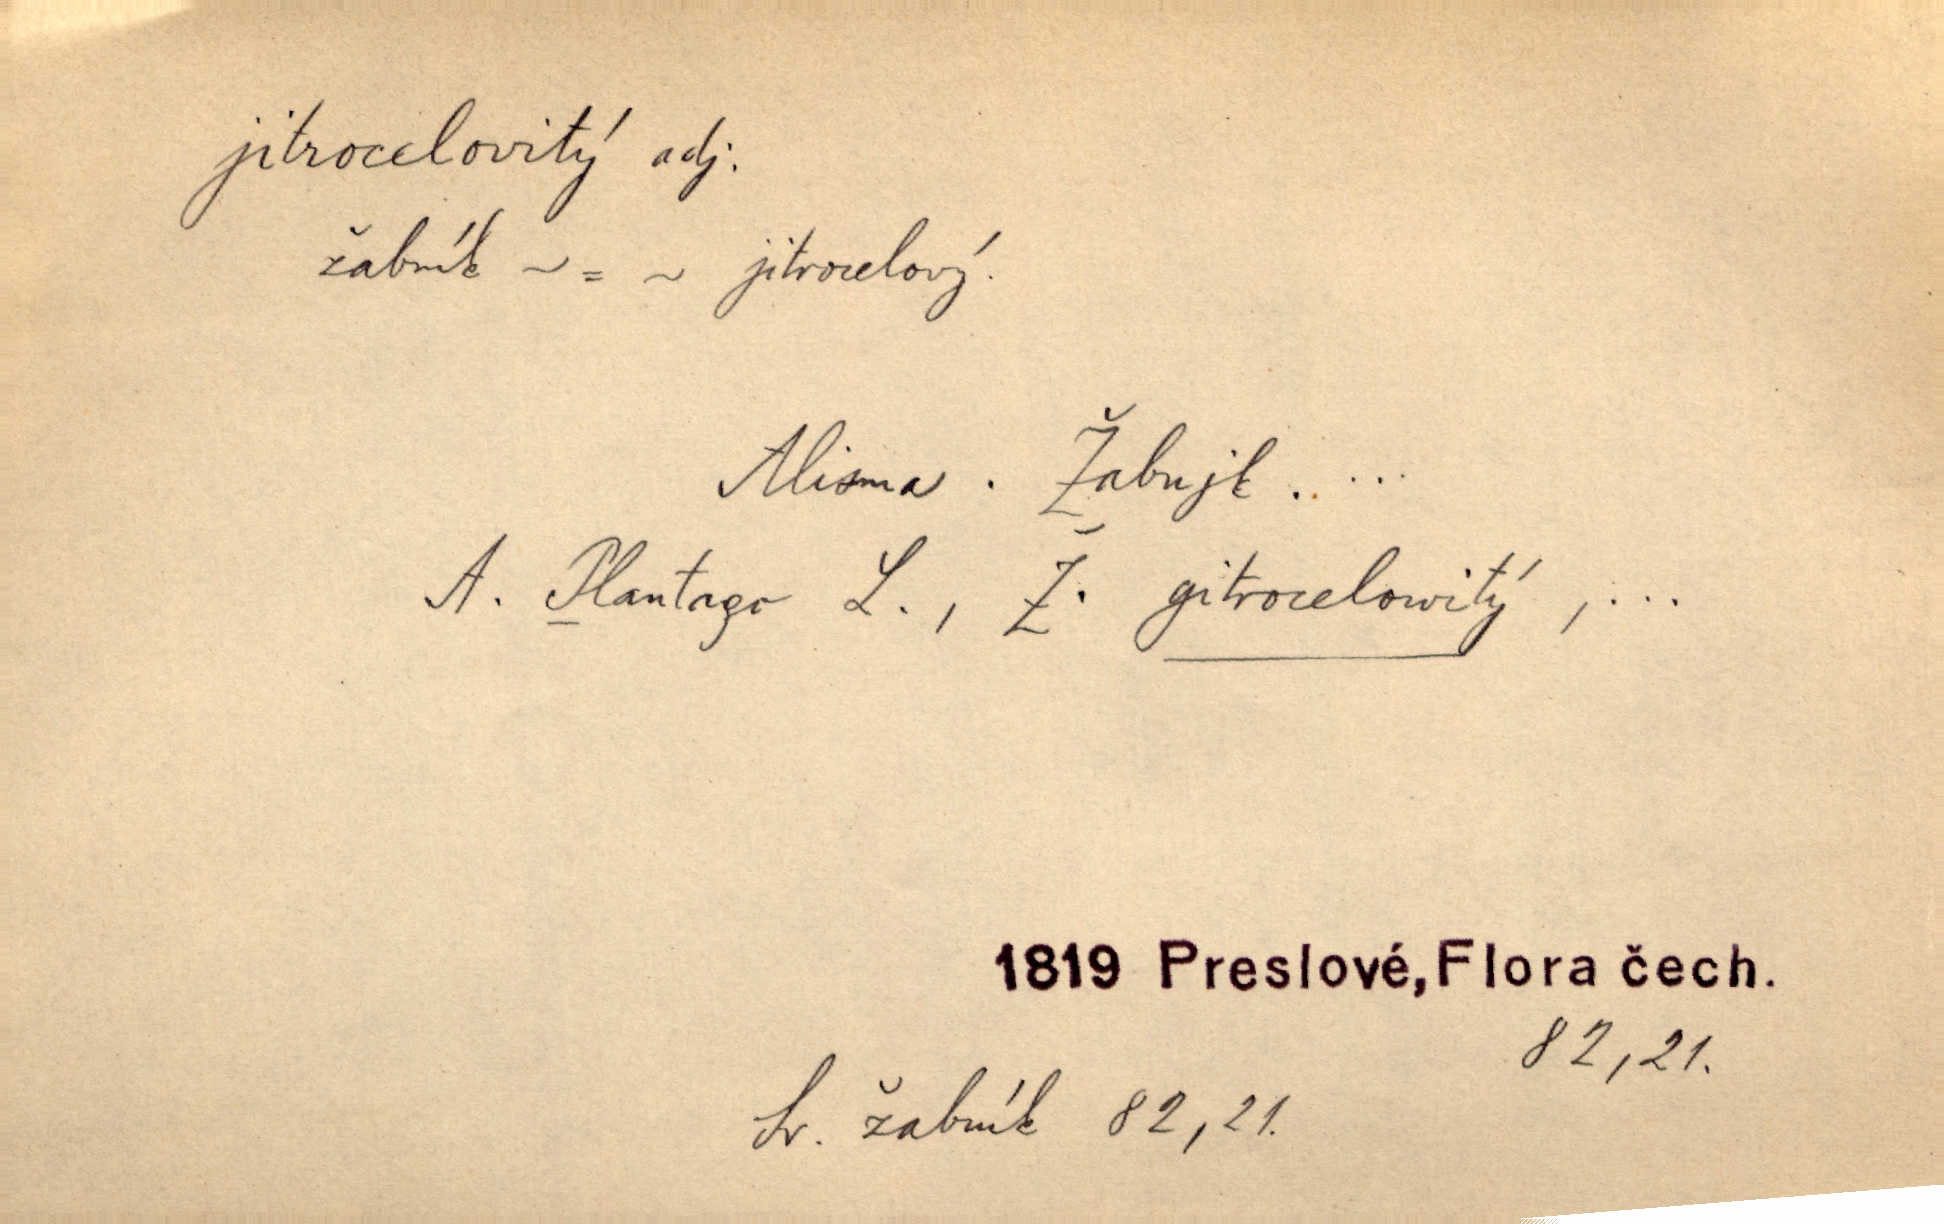 jitrocelovitý adj.
žabník ~ = ~ jitrocelový.
Alisma . Žabnjk . ...
A. Plantago L., Ž. gitrocelowitý, ...
1819 Preslové, Flora čech.
82, 21.
Sr. žabník 82, 21.